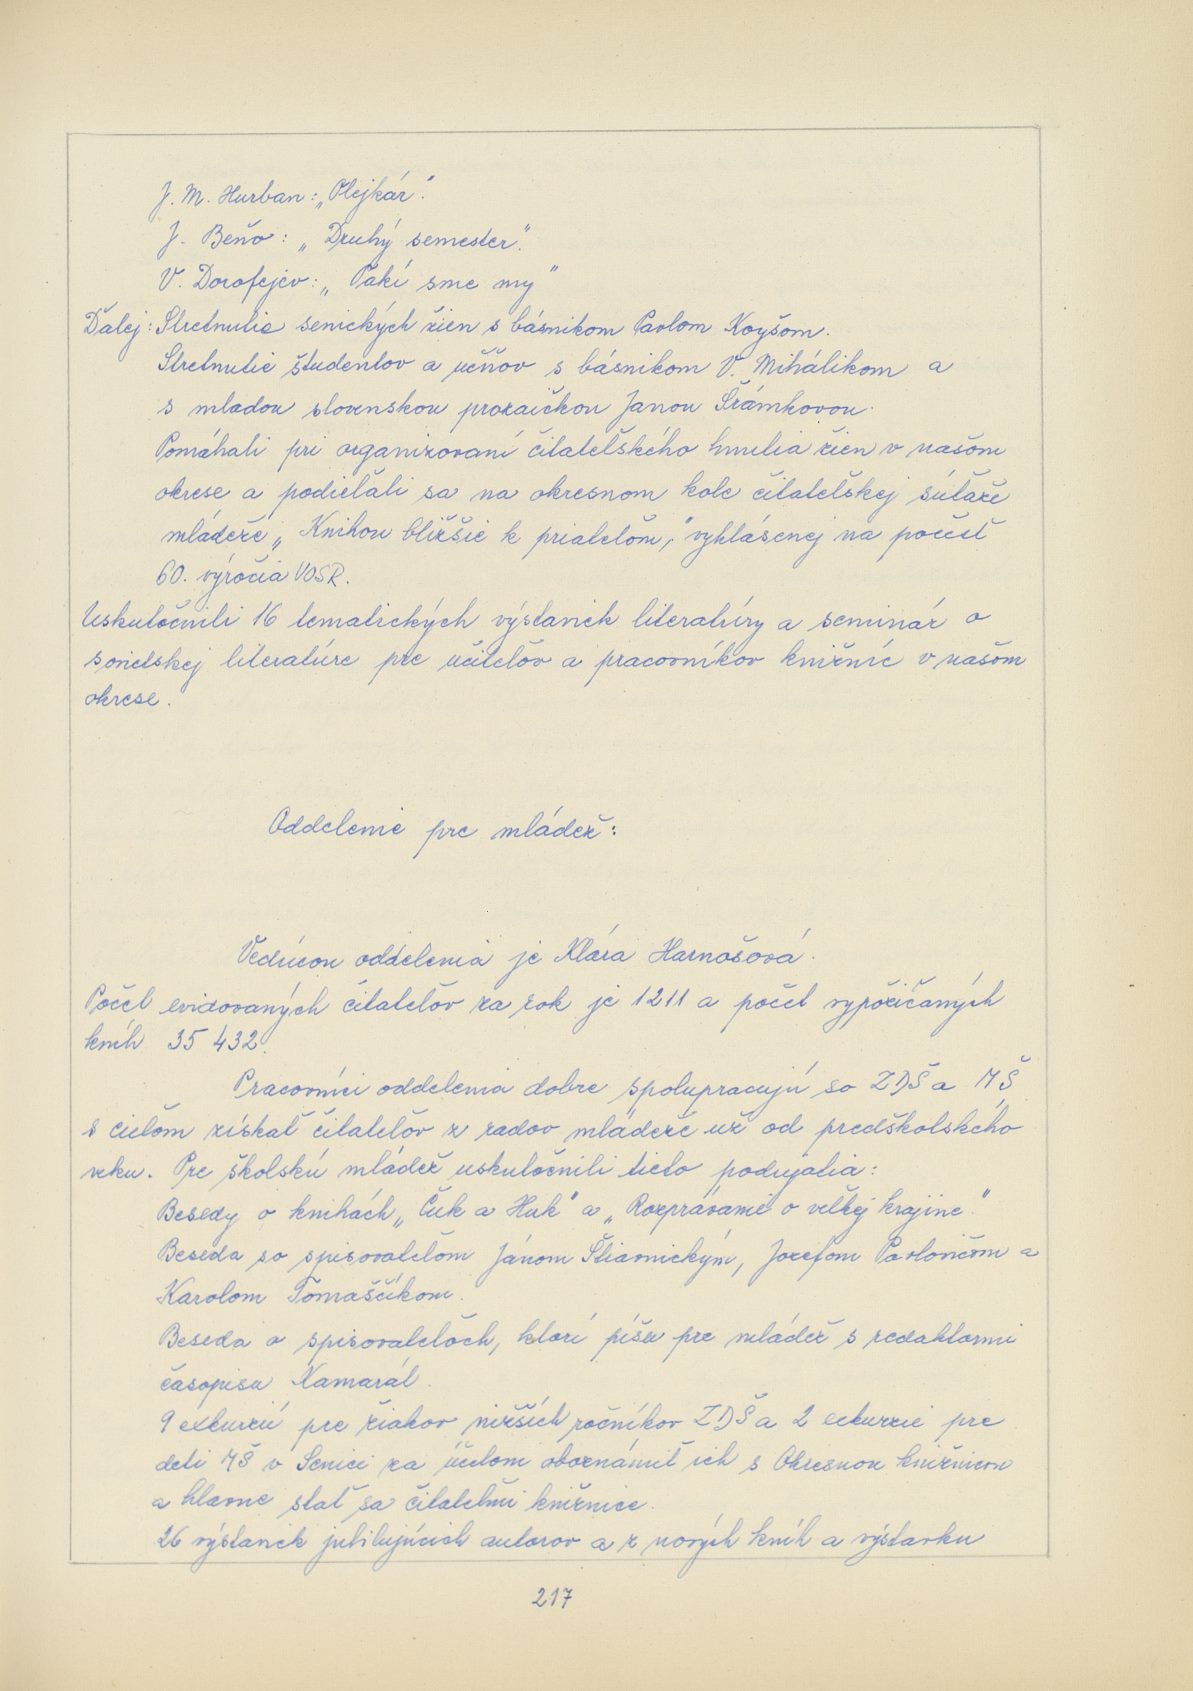 J. M. Hurban: „Olejkár".
J. Beňo: „Druhý semester".
V. Dorofejev: „Takí sme my"
Ďalej: Stretnutie senických žien s básnikom Pavlom Koyšom.
Stretnutie študentov a učňov s básnikom V. Mihálikom a
s mladou slovenskou prozaičkou Janou Šrámkovou.
Pomáhali pri organizovaní čitateľského hnutia žien v našom
okrese a podieľali sa na okresnom kole čitateľskej súťaže
mládeže „Knihou bližšie k priateľom," vyhlásenej na počesť
60. výročia VOSR.
Uskutočnili 16 tematických výstaviek literatúry a seminár o
sovietskej literatúre pre učiteľov a pracovníkov knižníc v našom
okrese.
Oddelenie pre mládež:
Vedúcou oddelenia je Klára Harnošová.
Počet evidovaných čitateľov za rok je 1211 a počet vypožičaných
kníh 35 432.
Pracovníci oddelenia dobre spolupracujú so ZDŠ a MŠ
s cieľom získať čitateľov z radov mládeže už od predškolského
veku. Pre školskú mládež uskutočnili tieto podujatia:
Besedy o knihách „Čuk a Huk" a „Rozprávanie o veľkej krajine".
Beseda so spisovateľom Jánom Štiavnickým, Jozefom Pavlovičom a
Karolom Tomaščíkom.
Beseda o spisovateľoch, ktorí píšu pre mládež s redaktormi
časopisu Kamarát.
9 exkurzií pre žiakov nižších ročníkov ZDŠ a 2 exkurzie pre
deti MŠ v Senici za účelom oboznámiť ich s Okresnou knižnicou
a hlavne stať sa čitateľmi knižnice.
26 výstaviek jubilujúcich autorov a z nových kníh a výstavku
217